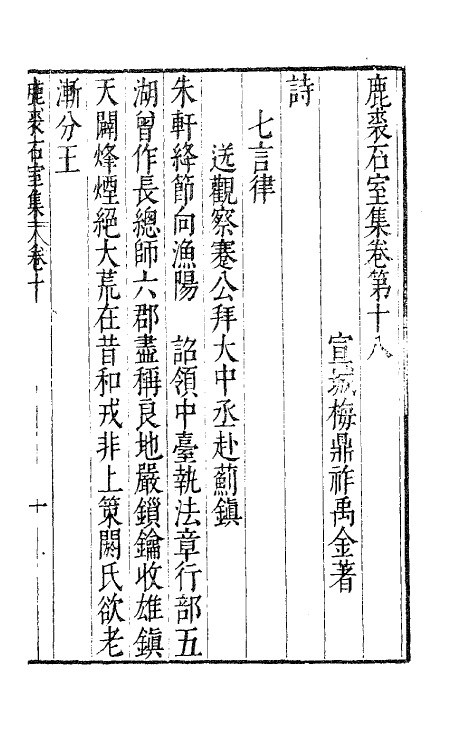 鹿裘石室集卷第十八
宣城梅鼎祚禹金著
詩
七言律
送觀察蹇公拜大中丞赴薊鎮
朱軒絳節向漁陽 詔領中臺執法章行部五
湖曾作長總師六郡盡稱良地嚴鎖鑰收雄鎮
天闢烽煙絕大荒在昔和戎非上策閼氏欲老
漸分王
鹿裘石室集 卷十
十